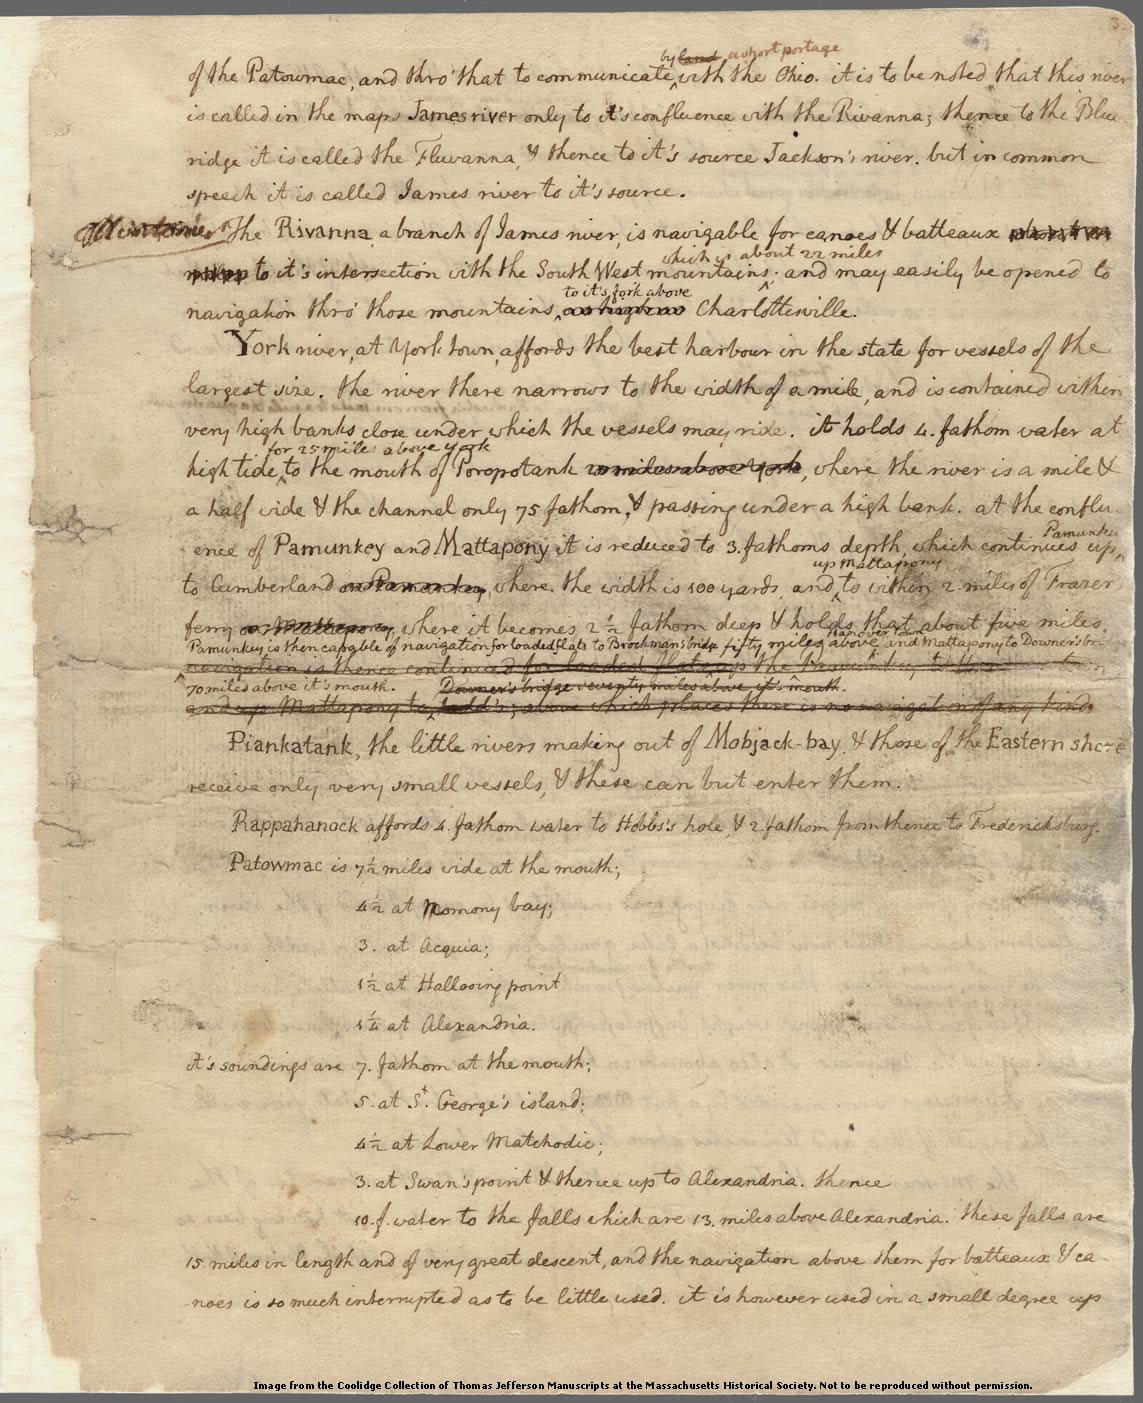 3
by land a short portage
of the Patowmac, and thro' that to communicate with the Ohio. it is to be noted that this river
is called in the maps James river only to it's confluence with the Rivanna; thence to the Blue
ridge it is called the Fluvanna, & thence to it's source Jackson's river. but in common
speech it is called James river to it's source.
The Rivanna, a branch of James river, is navigable for canoes & batteaux
which is about 22 miles
to it's intersection with the South West mountains; and may easily be opened to
to it's fork above
navigation thro' those mountains, as high as Charlottesville.
York river, at York town, affords the best harbour in the state for vessels of the
largest size. the river there narrows to the width of a mile, and is contained within
very high banks close under which the vessels may ride. it holds 4. fathom water at
for 25 miles above York
high tide to the mouth of Poropotank 25 miles above York, where the river is a mile &
a half wide & the channel only 75 fathom, & passing under a high bank. at the conflu-
Pamunkey
ence of Pamunkey and Mattapony it is reduced to 3. fathoms depth, which continues up
up Mattapony
to Cumberland on Pamunkey, where the width is 100 yards, and to within 2 miles of Frazer's
ferry on Mattapony, where it becomes 2 1/2 fathom deep & holds that about five miles.
Hanover town
Pamunkey is then capable of navigation for loaded flats to Brockman's bridge fifty miles above and Mattapony to Downer's bri
navigation is thence continued for loaded flats up the Pamunkey to Hanover town
70 miles above it's mouth. Downer's bridge seventy miles above it's mouth.
and up Mattapony to Todd's; above which places there is no navigation of any kind.
Piankatank, the little rivers making out of Mobjack-bay, & those of the Eastern shore
receive only very small vessels, & these can but enter them.
Rappahanock affords 4. fathom water to Hobbs's hole, & 2. fathom from thence to Fredericksburg.
Patowmac is 7 1/2 miles wide at the mouth;
4 1/2 at Nomony bay;
3. at Acquia;
1 1/2 at Hallooing point
1 1/4 at Alexandria.
it's soundings are 7. fathom at the mouth;
5. at St. George's island;
4 1/2 at Lower Matchodic;
3. at Swan's point & thence up to Alexandria. thence
10. f. water to the falls which are 13. miles above Alexandria. these falls are
15. miles in length and of very great descent, and the navigation above them for batteaux & ca-
noes is so much interrupted as to be little used. it is however used in a small degree up
Image from the Coolidge Collection of Thomas Jefferson Manuscripts at the Massachusetts Historical Society. Not to be reproduced without permission.